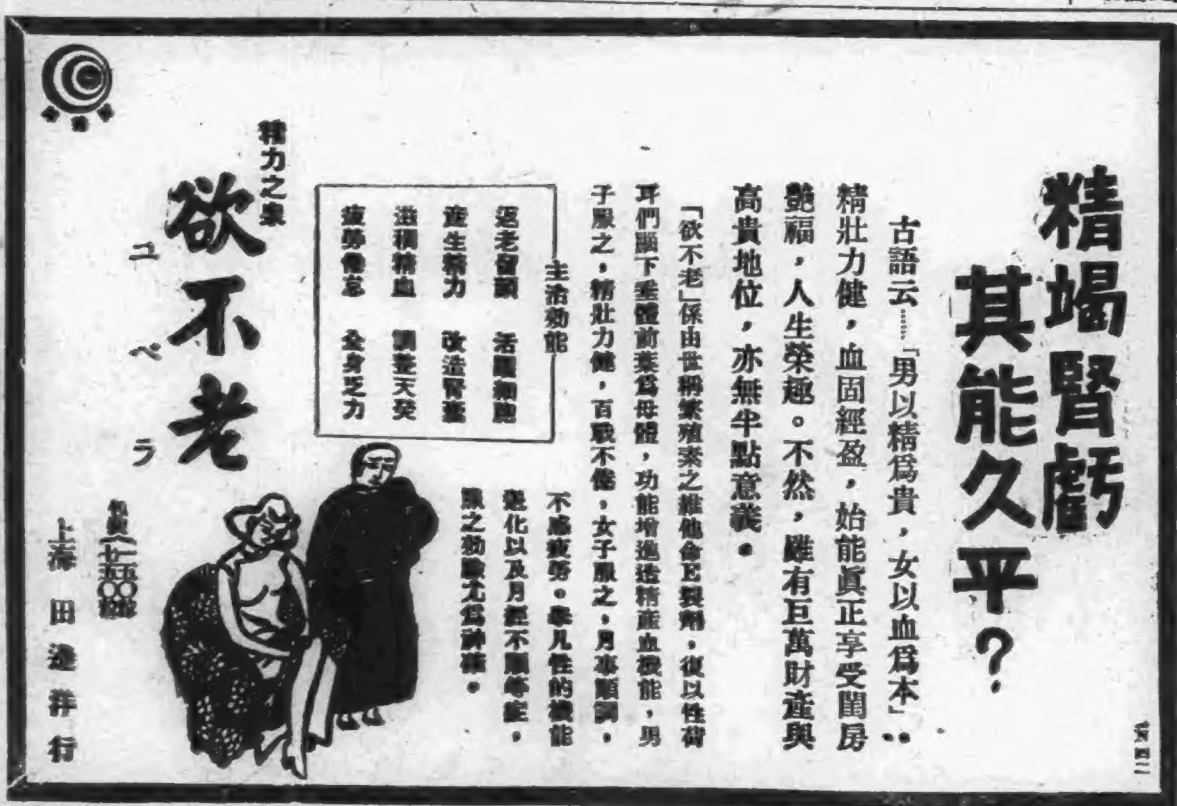 精竭腎虧
其能久平?
古語云……「男以精爲貴，女以血爲本」：
精壯力健，血固經盈，始能眞正享受閨房
艶福，人生榮趣。不然，雖有巨萬財產與
高貴地位，亦無半點意義。
「欲不老」係由世稱繁殖素之維他命E製劑，復以性荷
耳們腦下垂體前葉爲母體，功能增進造精產血機能，男
子服之，精壯力健，百戰不倦，女子服之，月事順調，
不感疲勞。舉凡性的機能
退化以及月經不順等症，
服之効驗尤爲神確。
主治効能
返老留顏 活躍細胞
產生精力 改造腎臟
滋稠精血 調整天癸
疲勞健忘 全身乏力
精力之泉
欲不老
ユベラ
上海田邊洋行